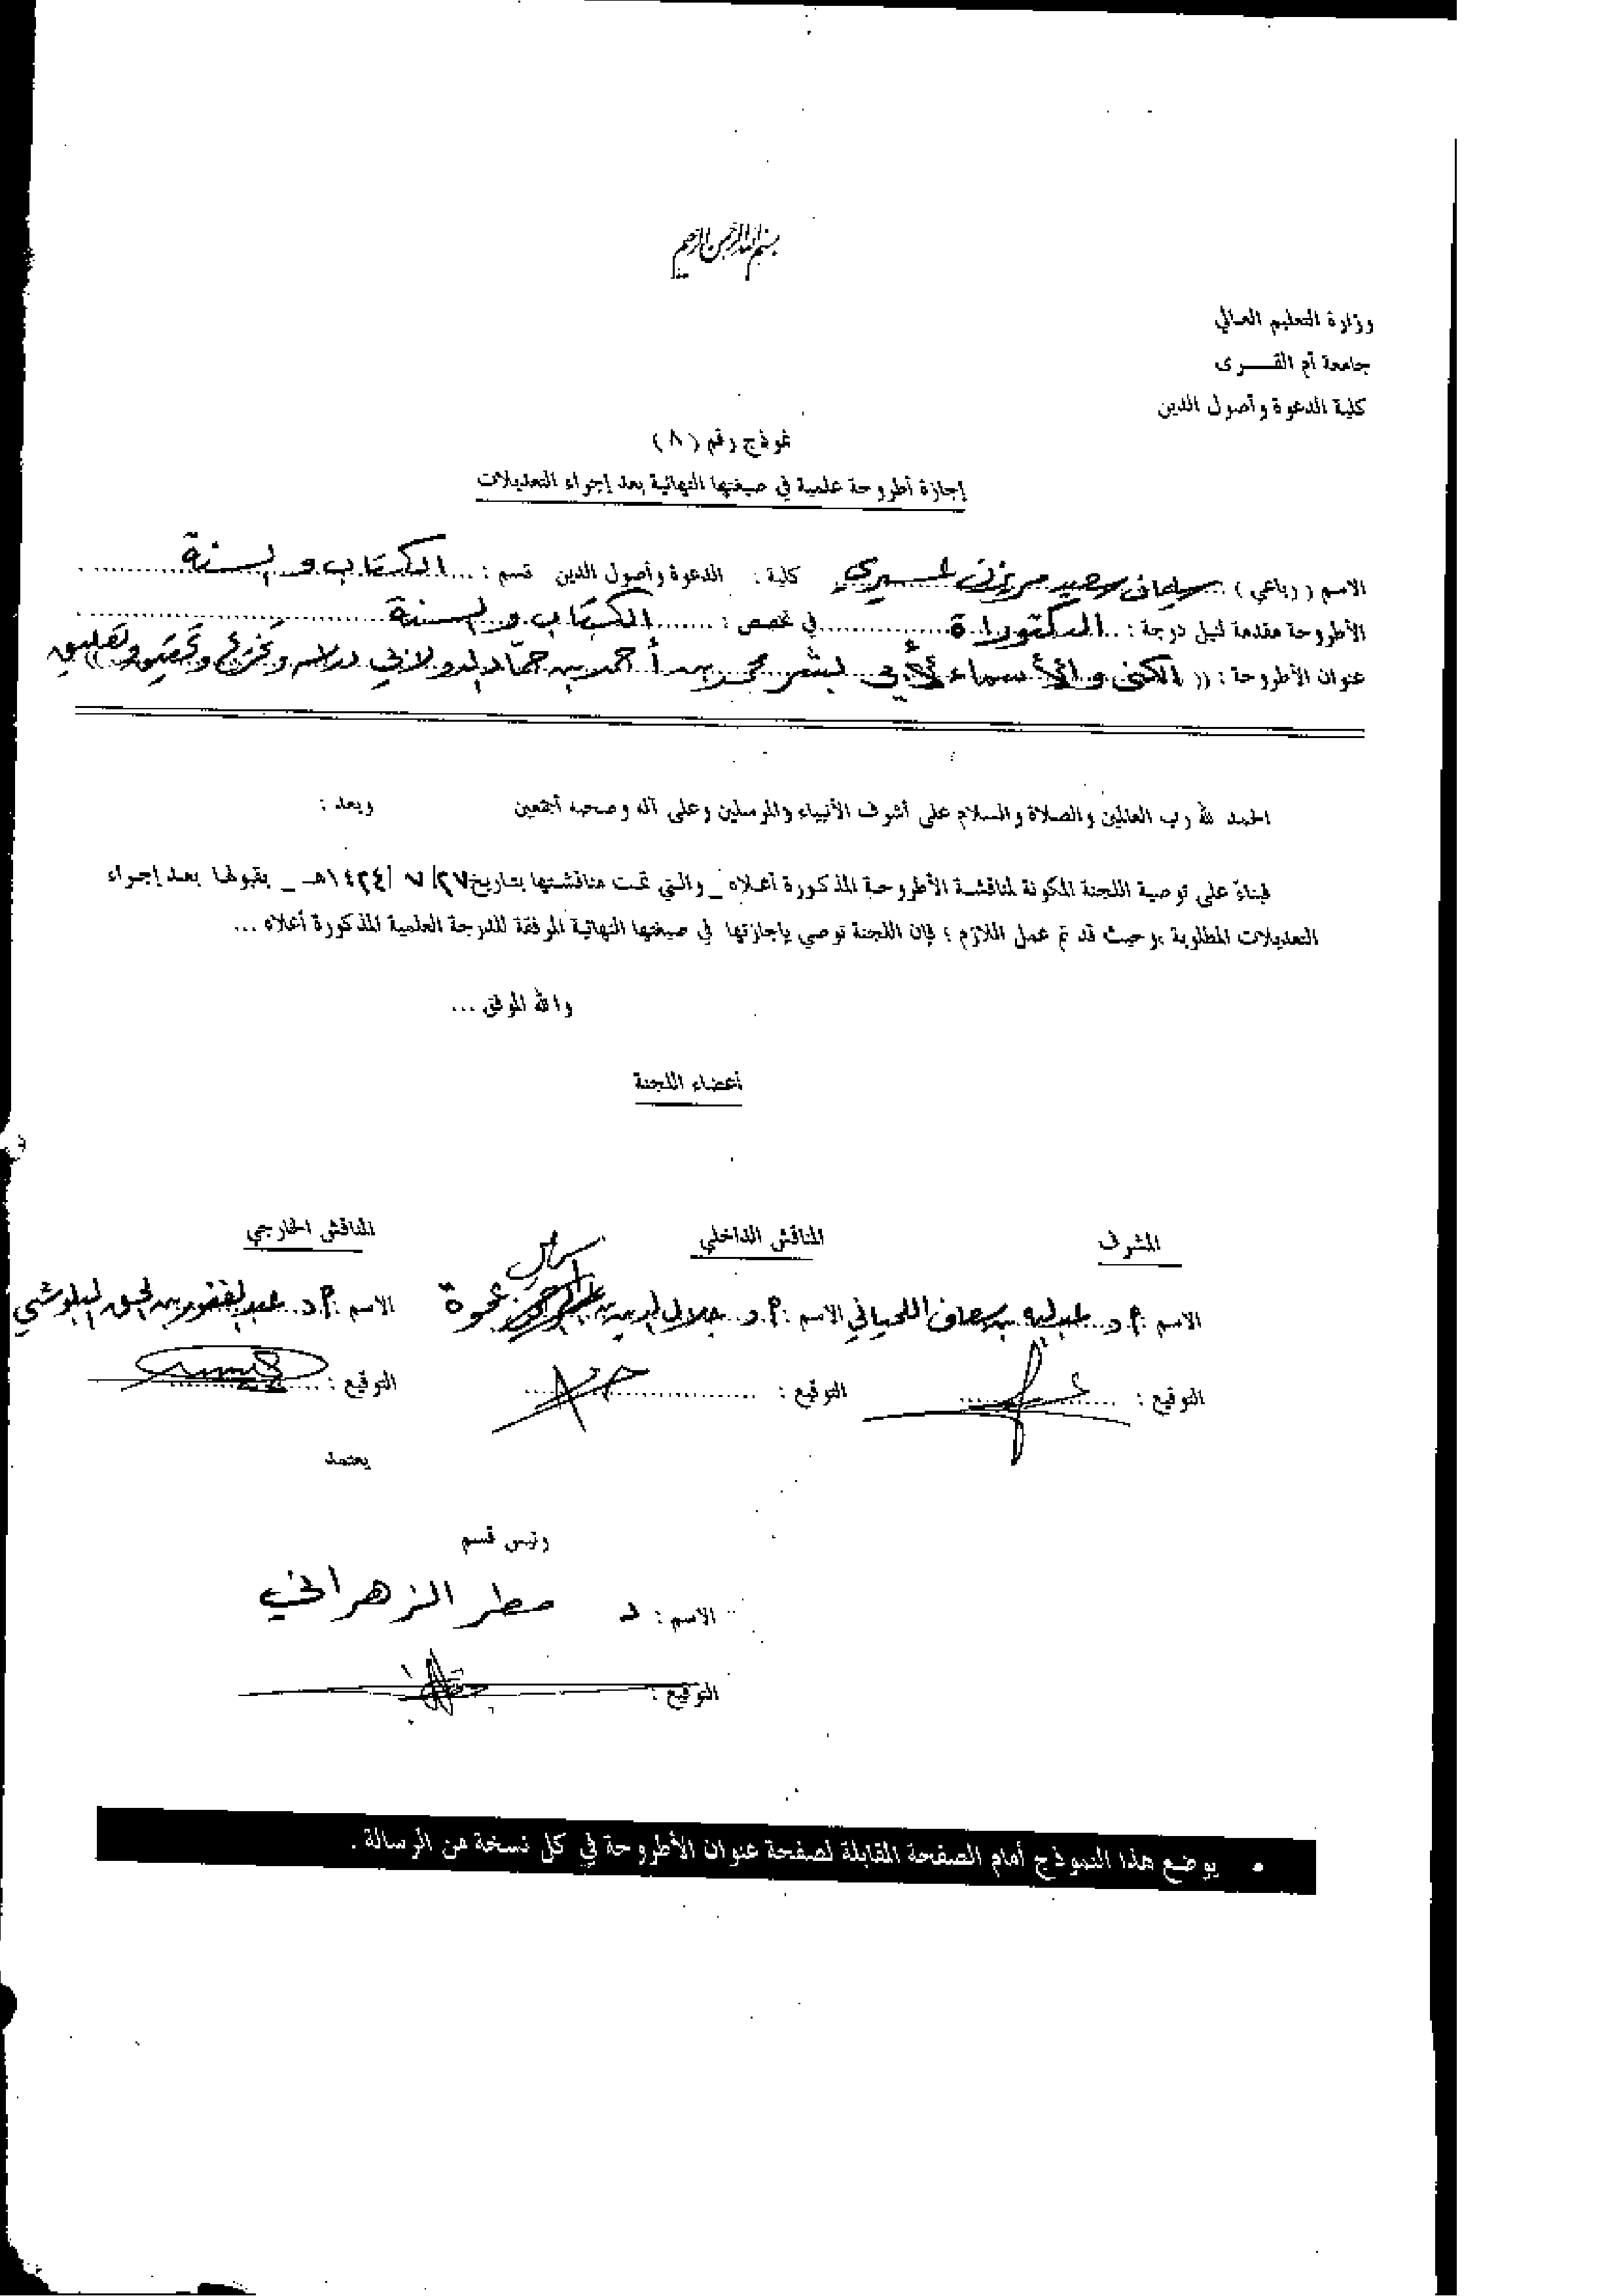 بسم الله الرحمن الرحيم
وزارة التعليم العالي
جامعة أم القــــرى
كلية الدعوة وأصول الدين
نموذج رقم (٨)
إجازة أطروحة علمية في صيغتها النهائية بعد إجراء التعديلات
الاسم ( رباعي ) : سليمان سعيد مريزن عسيري كلية : الدعوة وأصول الدين قسم : الكتاب والسنة
الأطروحة مقدمة لنيل درجة : الدكتوراة في تخصص : الكتاب والسنة
عنوان الأطروحة : (( الكنى والأسماء لأبي بشر محمد بن أحمد بن حمّاد الدولابي دراسة وتخريج وتحقيق وتعليق ))
الحمد لله رب العالمين والصلاة والسلام على أشرف الأنبياء والمرسلين وعلى آله وصحبه أجمعين وبعد :
فبناءً على توصية اللجنة المكونة لمناقشة الأطروحة المذكورة أعلاه _ والتي تمت مناقشتها بتاريخ ٢٧/ ٧ /١٤٢٤هـ _ بقبولها بعد إجراء
التعديلات المطلوبة ،وحيث قد تم عمل اللازم ؛ فإن اللجنة توصي بإجازتها في صيغتها النهائية المرفقة للدرجة العلمية المذكورة أعلاه ...
والله الموفق ...
أعضاء اللجنة
المشرف المناقش الداخلي المناقش الخارجي
الاسم : أ.د. عبدالله بن سعاف اللحياني الاسم : أ.د. جلال الدين عجوة الاسم : أ.د. عبدالغفور بن عبدالحق البلوشي
التوقيع : التوقيع : التوقيع :
يعتمد
رئيس قسم
الاسم : د مطر الزهراني
التوقيع :
• يوضع هذا النموذج أمام الصفحة المقابلة لصفحة عنوان الأطروحة في كل نسخة من الرسالة .